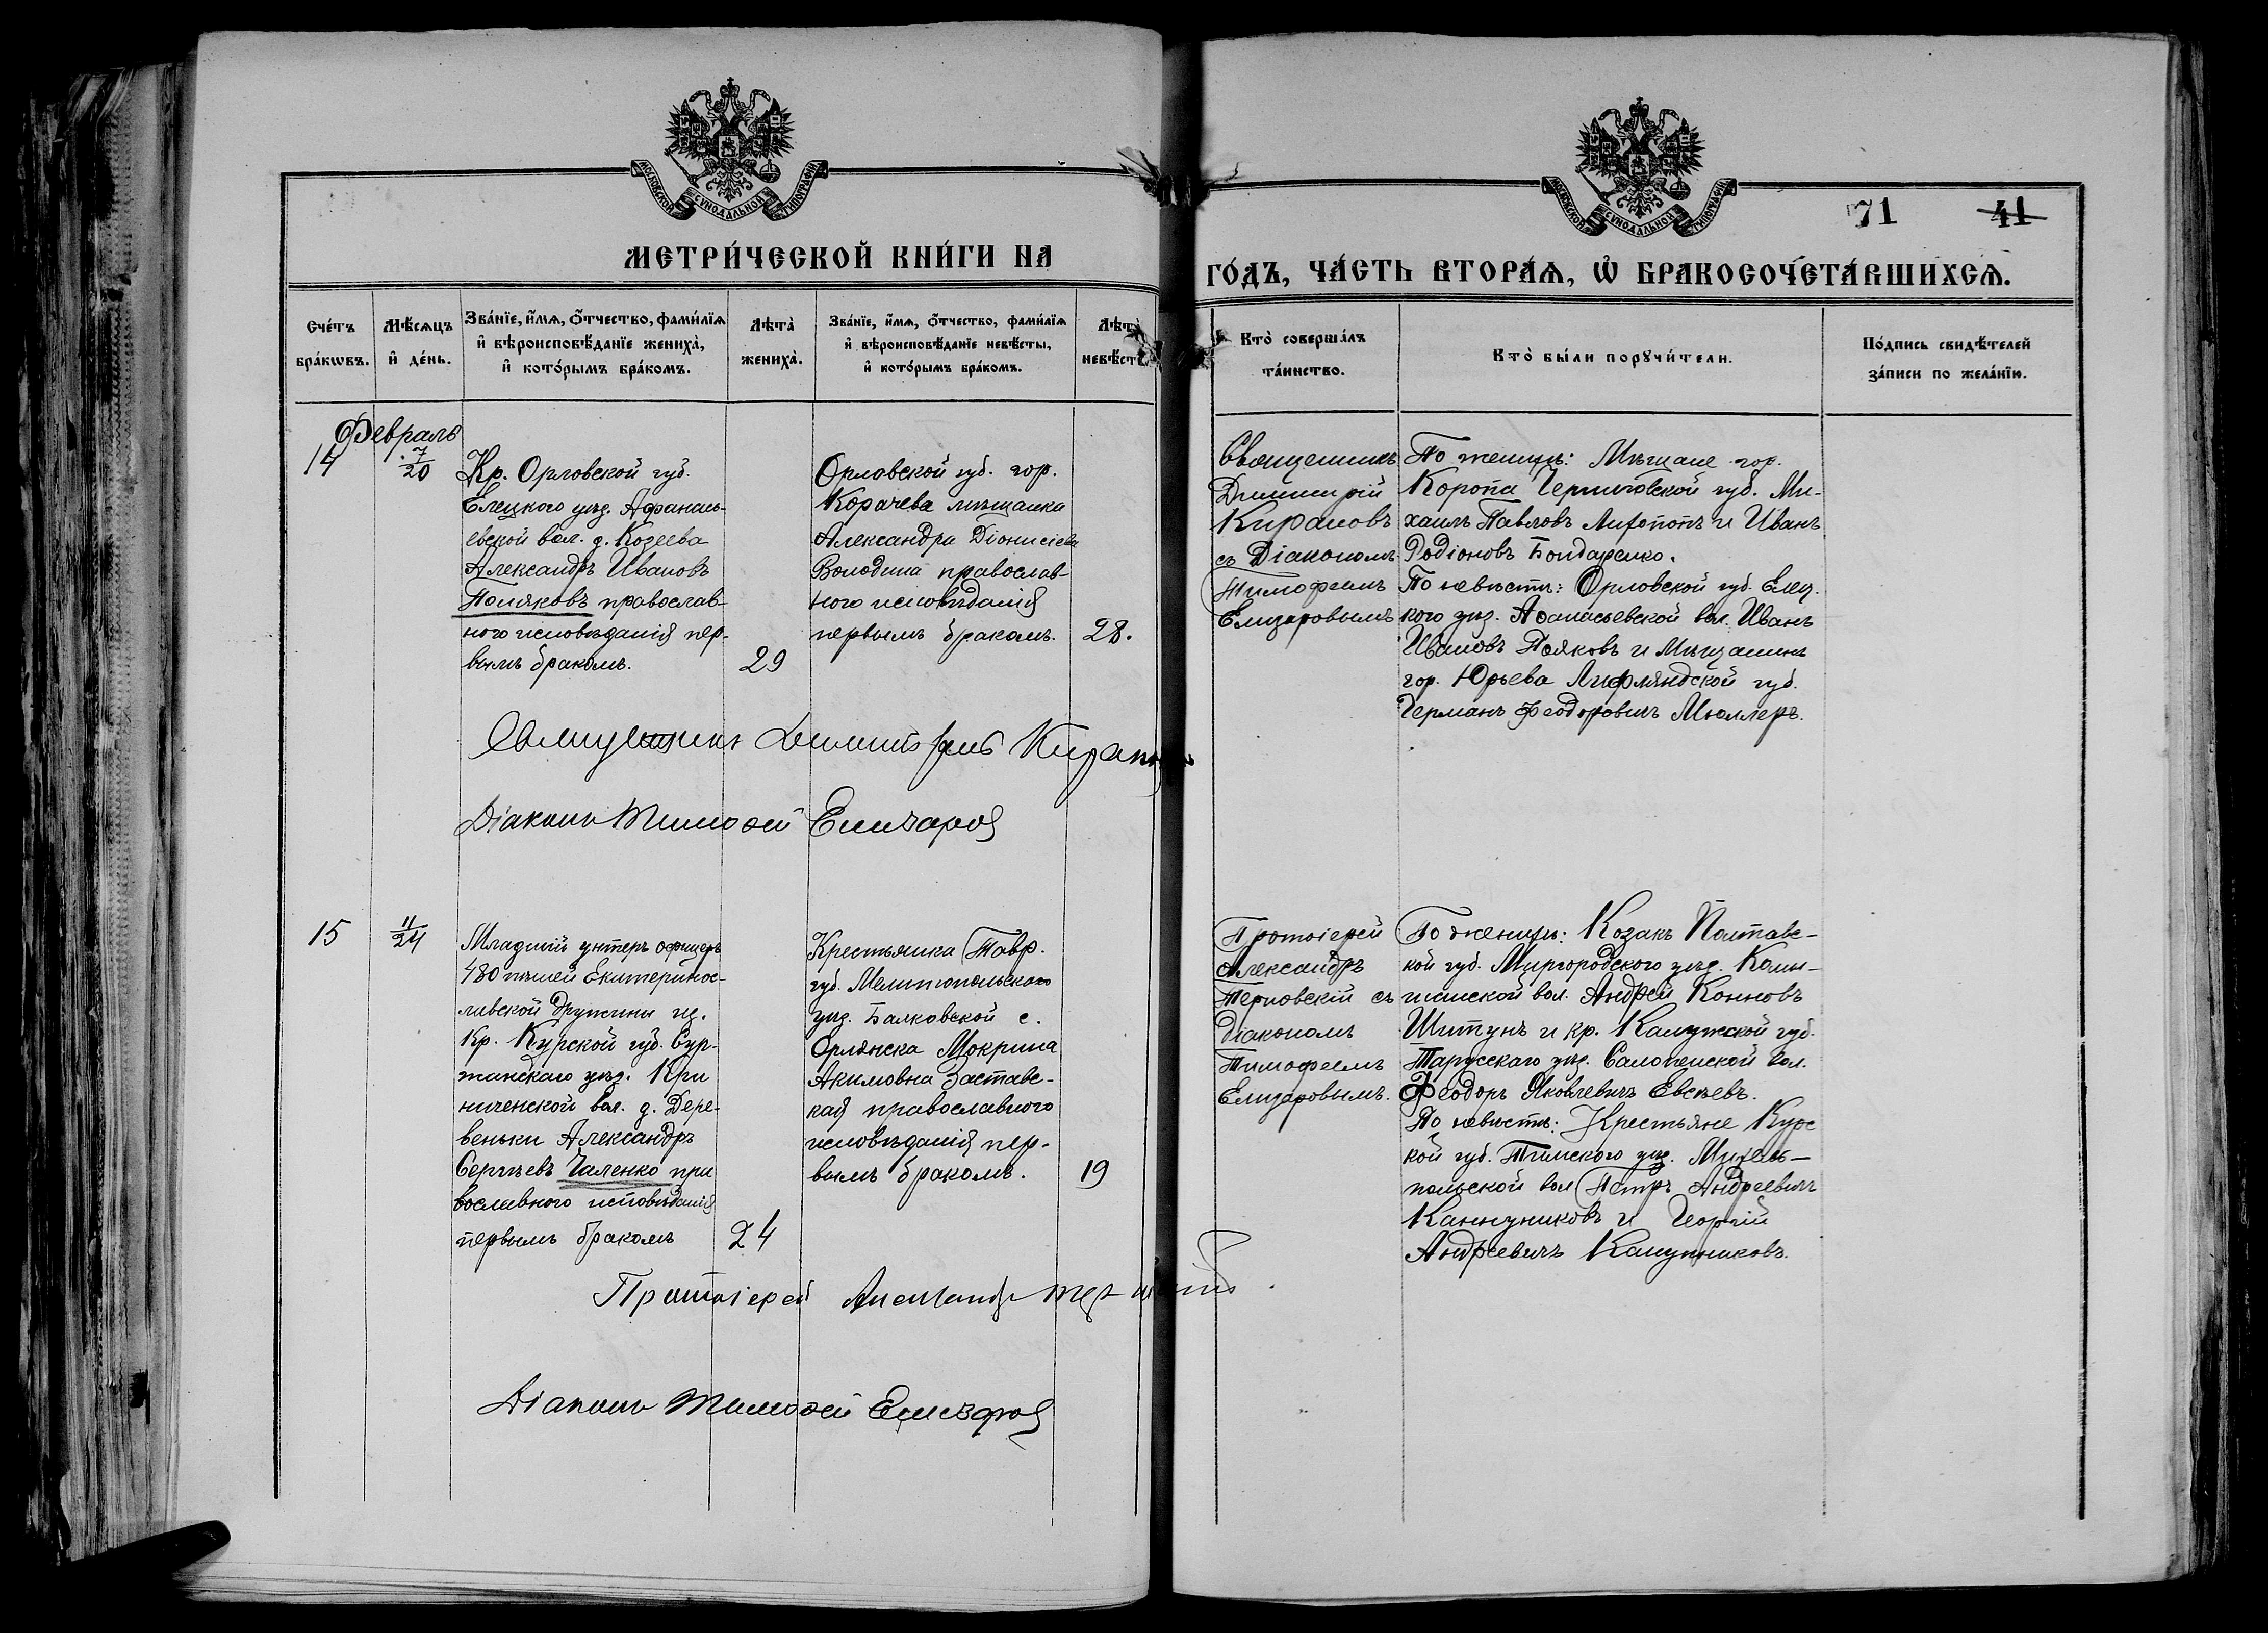 МОСКОВСКОЙ СѴНОДАЛЬНОЙ ТИПОГРАФІИ
МЕТРИ́ЧЕСКОЙ КНИ́ГИ НА
Сче́тъ бра́кѡвъ.
Мѣ́сяцъ и҆ де́нь.
Зва́нїе, и҆́мѧ, ѻ҆́тчество, фами́лїѧ и҆ вѣроисповѣ́данїе жениха̀, и҆ кото́рымъ бра́комъ.
Лѣта̀ жениха̀.
Зва́нїе, и҆́мѧ, ѻ҆́тчество, фами́лїѧ и҆ вѣроисповѣ́данїе невѣ́сты, и҆ кото́рымъ бра́комъ.
Лѣта̀ невѣ́сты
Февраль
14
7/20
Кр. Орловской губ.
Елецкого уѣз. Афанась-
евской вол. д. Козеева
Александръ Ивановъ
Поляковъ православ-
ного исповѣданія пер-
вымъ бракомъ.
29
Орловской губ. гор.
Корачева мѣщанка
Александра Діонисіева
Володина православ-
ного исповѣданія
первымъ бракомъ.
28.
Священникъ Димитрій
Діаконъ Тимофей Елизаров
15
11/24
Младшій унтеръ офицеръ
480 пѣшей Екатеринос-
лавской дружины
Кр. Курской губ. Суд-
жанскаго уѣз. Кри
ниченской вол. д. Дере-
веньки Александръ
Сергѣевъ Чаленко пра
вославного исповѣданія
первымъ бракомъ
24
Крестьянка Тавр.
губ. Мелитопольского
уѣз. Балковской с.
Орлянска Мокрина
Акимовна Заставс-
кая православного
исповѣданія пер-
вымъ бракомъ.
19
Протоіерей Александр
Діаконъ Тимофей Елизаров
МОСКОВСКОЙ СѴНОДАЛЬНОЙ ТИПОГРАФІИ
71 41
ГО́ДЪ, ЧА́СТЬ ВТОРА́Ѧ, Ѡ҆ БРАКОСОЧЕТА́ВШИХСѦ.
Кто̀ соверша́лъ та́инство.
Кто̀ бы́ли порꙋчи́тели.
По́дпись свидѣ́телей за́писи по жела́нїю.
Священникъ
Димитрій
Кирановъ
съ Діакономъ
Тимофеемъ
Елизаровымъ
По женихѣ: Мѣщане гор.
Коропа Черниговской губ. Ми-
хаилъ Павловъ и Иванъ
Родіоновъ Бондаренко.
По невѣстѣ: Орловской губ. Елец.
кого уѣз. Афанасьевской вол. Иванъ
Ивановъ Поляковъ и Мѣщанинъ
гор. Юрьева Лифляндской губ.
Германъ Феодоровичъ Мюллеръ.
Протоіерей
Александръ
Терновскій съ
діакономъ
Тимофеемъ
Елизаровымъ.
По женихѣ: Козакъ Полтавс-
кой губ. Миргородского уѣз. Комы-
шанской вол. Андрей Конновъ
и кр. Калужской губ.
Тарусскаго уѣз. Салопенской вол.
Феодоръ Яковлевичъ Евсѣевъ.
По невѣстѣ: Крестьяне Курс
кой губ. Тимского уѣз. Михель-
польской вол Петръ Андреевичъ
и Георгій
Андреевичъ